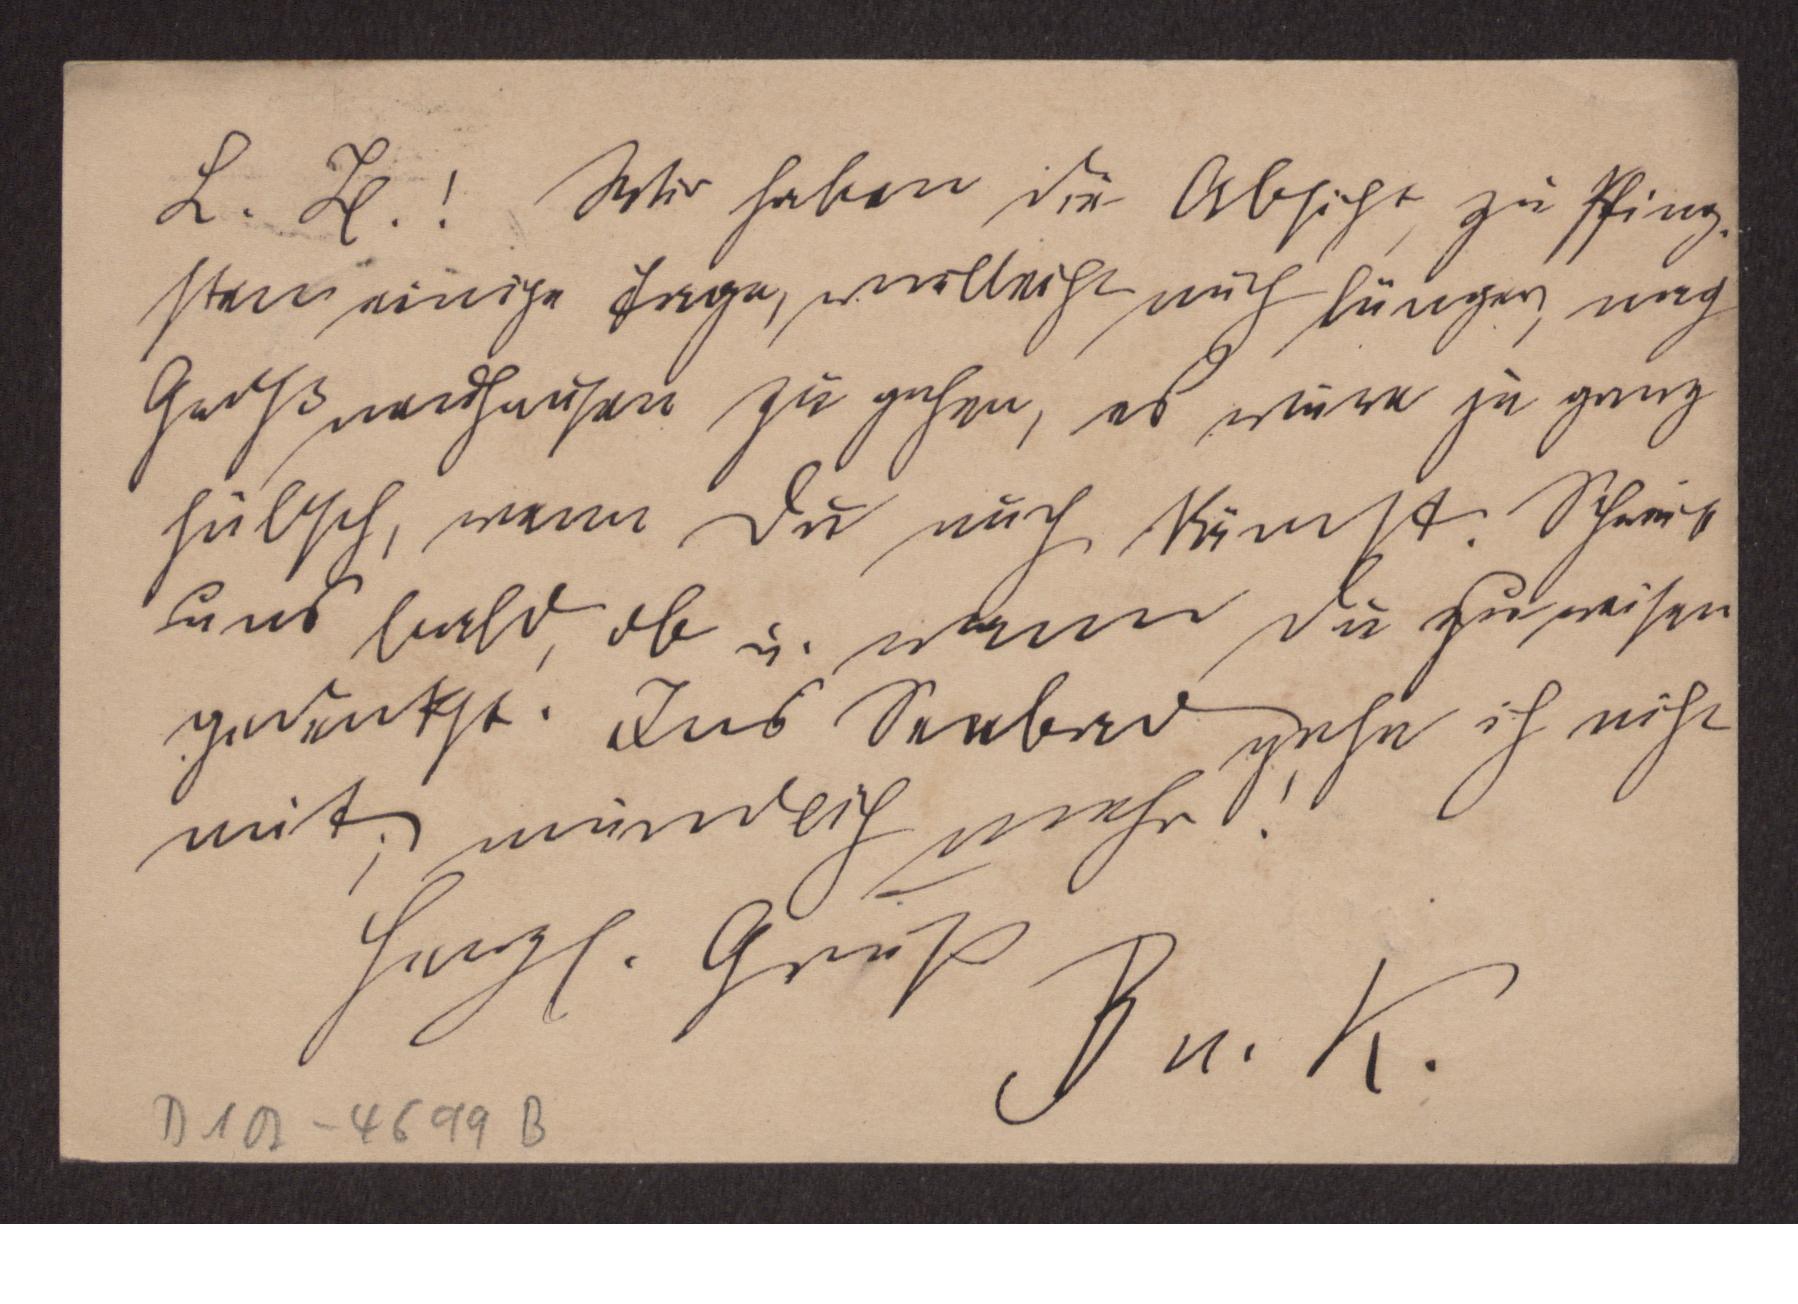 L. H.! Wir haben die Absicht, zu Pfing-
sten einige Tage, vielleicht auch länger, nach
zu gehen, es wäre ja ganz
hübsch, wenn Du auch kämst. Schreib
uns bald, ob u. wann Du zureisen
gedenkst. Ins Seebad gehe ich nicht
mit, mündlich mehr!
Herzl. Gruß
B u. K.
D 102 - 4699 B